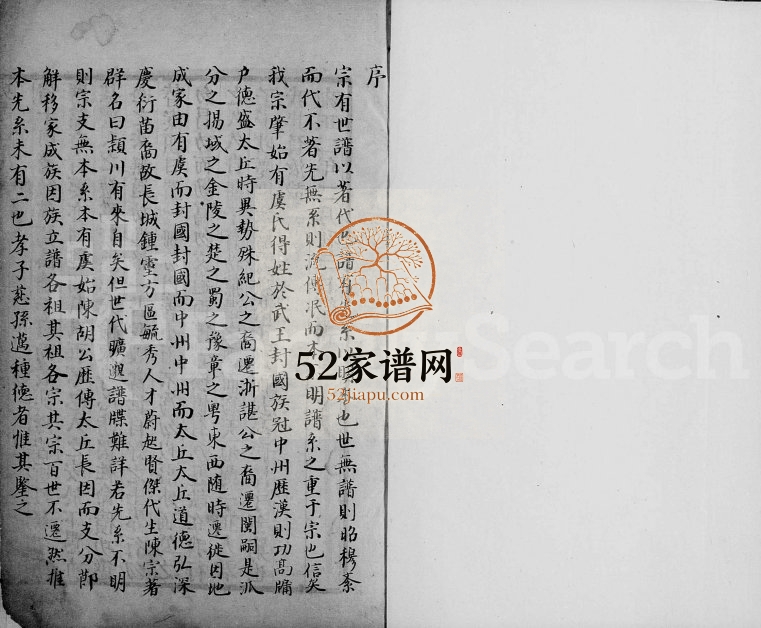 序
宗有世譜以著代也譜有系以明也世無譜則昭穆紊
而代不著先無系則流傳泯而本明譜系之重于宗也信矣
我宗肇始有虞氏得姓於武王封國族冠中州歷漢則功髙牖
户德盛太丘時異勢殊紀公之裔遷浙諶公之裔遷閩嗣是派
分之揚城之金陵之楚之蜀之豫章之粤東西随時遷徙因地
成家由有虞而封國封國而中州中州而太丘太丘道德弘深
慶衍苗裔故長城鍾靈方區毓秀人才蔚起賢傑代生陳宗著
群名曰頴川有來自矣但世代曠邈譜牒難詳若先系不明
則宗支無本系本有虞始陳胡公歷傳太丘長因而支分節
解移家成族因族立譜各祖其祖各宗其宗百世不遷然推
本先系未有二也孝子慈孫邁種德者惟其鑒之
52家谱网
52jiapu.com
Search